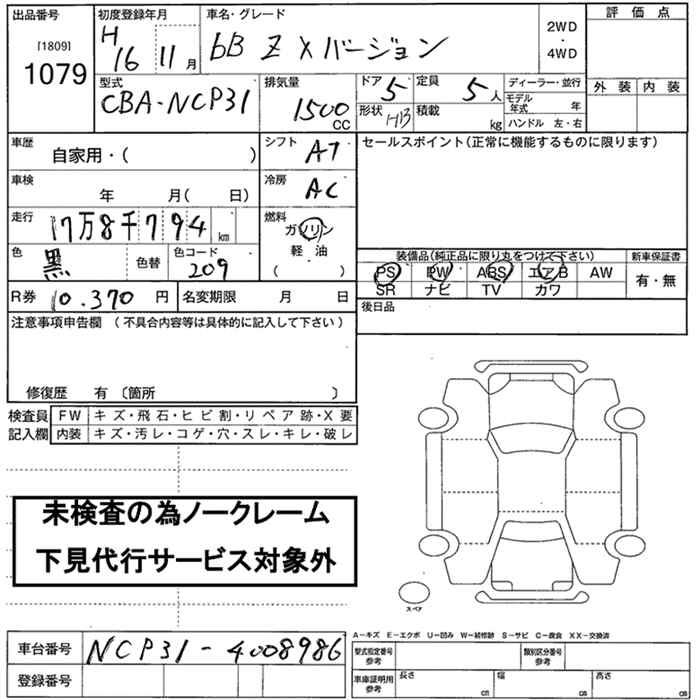 出品番号 初度登録年月 車名・グレード 評価点
[1809] H 2WD
1079 16 11月 bB Z Xバージョン ・
4WD
型式 排気量 ドア 5 定員 5人 ディーラー・並行 外装 内装
CBA-NCP31 1500 モデル年式 年
CC 形状 積載 kg ハンドル 左・右
車歴 シフト AT セールスポイント(正常に機能するものに限ります)
自家用・( )
車検 冷房 AC
年 月( 日)
走行 17万8千794km 燃料
ガソリン
色 黒 色替 色コード 209 軽油 装備品(純正品に限り丸をつけて下さい) 新車保証書
( ) PS PW ABS エアB AW 有・無
R券 10.370円 名変期限 月 日 SR ナビ TV カワ
注意事項申告欄 (不具合内容等は具体的に記入して下さい) 後日品
修復歴 有 〔箇所 〕
検査員 FW キズ・飛石・ヒビ割・リペア跡・X要
記入欄 内装 キズ・汚レ・コゲ・穴・スレ・キレ・破レ
未検査の為ノークレーム
下見代行サービス対象外
スペア
A-キズ E-エクボ U-凹み W-補修跡 S-サビ C-腐食 XX-交換済
車台番号 NCP31-4008986 型式指定番号参考 類別区分番号参考
登録番号 車庫証明用参考 長さ cm 幅 cm 高さ cm